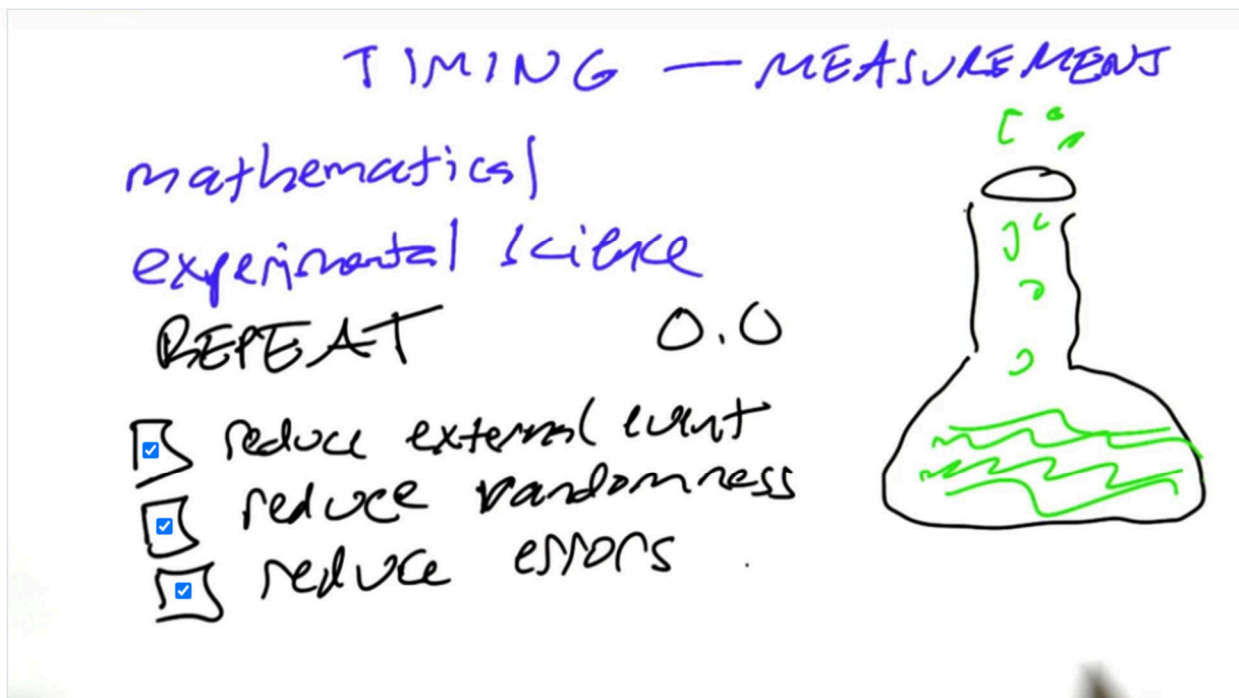 TIMING — MEASUREMENT
mathematical
experimental science
REPEAT 0.0
reduce external event
reduce randomness
reduce errors